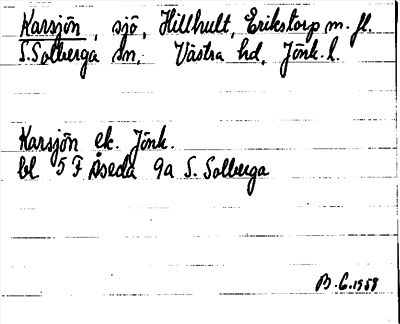 Karsjön, sjö, Hillhult, Erikstorp m. fl.
S. Solberga sn. Västra hd, Jönk. l.
Karsjön ek. Jönk.
bl 5 F Åseda 9a S. Solberga
B. G. 1958